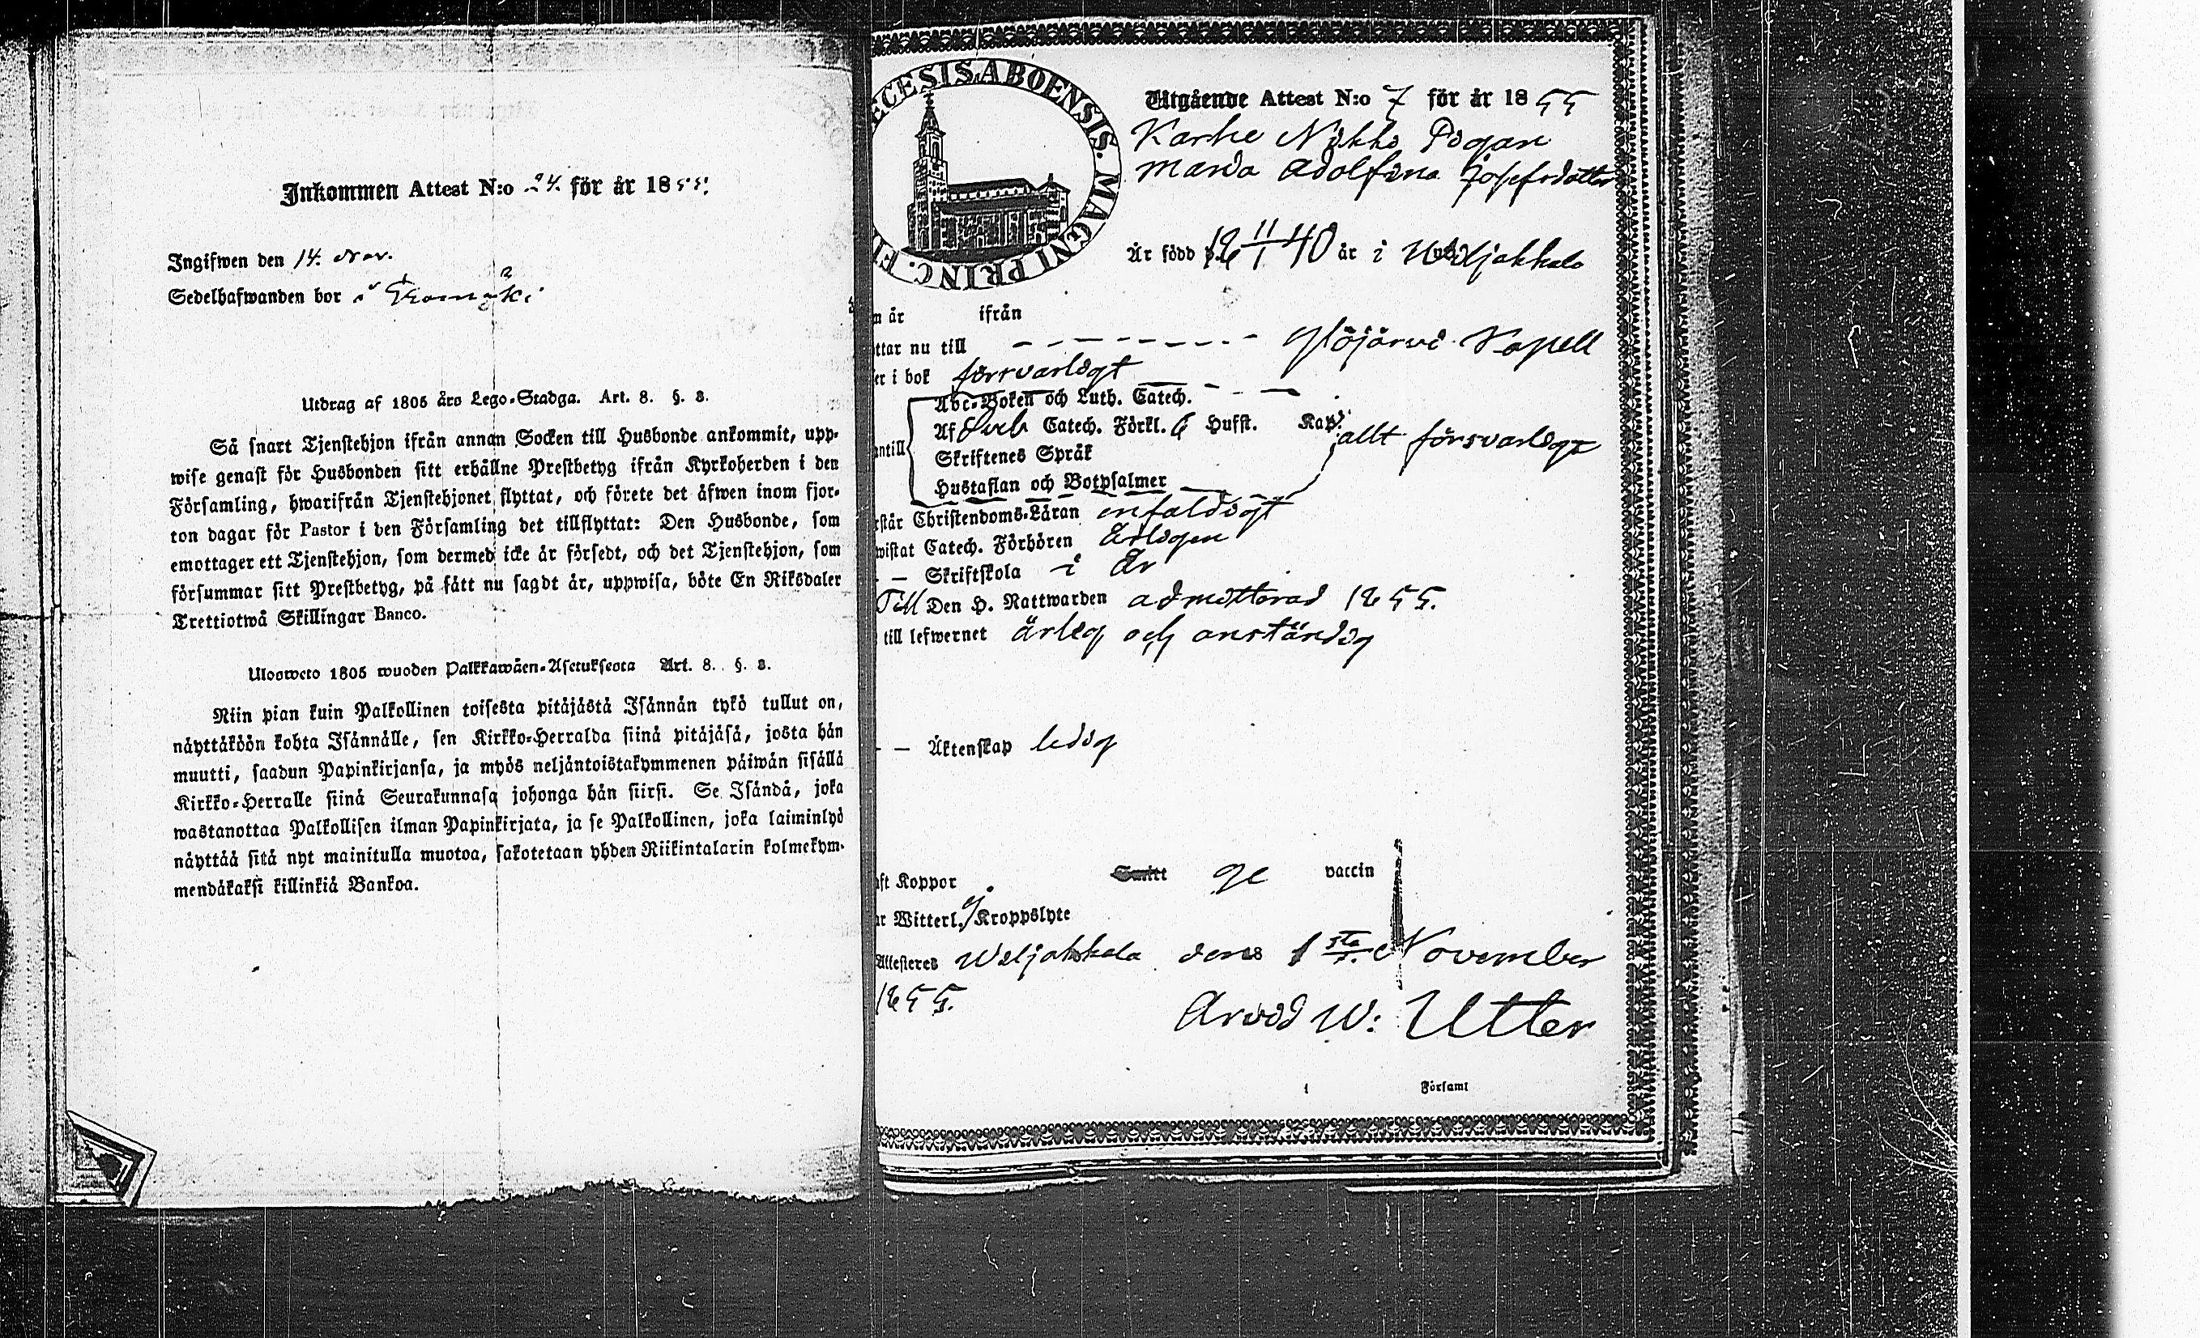 Inkommen Attest N:o 24. för år 1855.
Ingifwen den 14. Nov.
Sedelhafwanden bor i
Utdrag af 1805 års Lego-Stadga. Art. 8. §. 3.
Så snart Tjenstehjon ifrån annan Socken till Husbonde ankommit, upp-
wise genast för Husbonden sitt erhållne Prestbetyg ifrån Kyrkoherden i den
Församling, hwarifrån Tjenstehjonet flyttat, och förete det äfwen inom fjor-
ton dagar för Pastor i den Församling det tillflyttat: Den Husbonde, som
emottager ett Tjenstehjon, som dermed icke är försedt, och det Tjenstehjon, som
försummar sitt Prestbetyg, på sått nu sagdt är, uppwisa, böte En Riksdaler
Trettiotwå Skillingar Banco.
Ulosweto 1805 wuoden Palkkawäen-Asetuksesta Art. 8. §. 3.
Niin pian kuin Palkollinen toisesta pitäjästä Isännän tykö tullut on,
näyttäköön kohta Isännälle, sen Kirkko-Herralda siinä pitäjäsä, josta hän
muutti, saadun Papinkirjansa, ja myös neljäntoistakymmenen päiwän sisällä
Kirkko-Herralle siinä Seurakunnasa johonga hän siirsi. Se Isändä, joka
wastanottaa Palkollisen ilman Papinkirjata, ja se Palkollinen, joka laiminlyö
näyttää sitä nyt mainitulla muotoa, sakotetaan yhden Riikintalarin kolmekym-
mendäkaksi killinkiä Bankoa.
ECESIS. ABOENSIS. MAGNI PRINC. F
Utgående Attest N:o 7 för år 1855
Karhe Nikko Pigan
Maria Adolfina Josefsdotter
Är född 18 11/1 40 år i Wiljakkala
n år ifrån
ttar nu till Ylöjärvi Kapell
er i bok försvarligt
Abc-Boken och Luth. Catech.
Af Sveb Catech. Förkl. 6 Hufst. Kap: allt försvarligt
antill Skriftenes Språk
Hustaflan och Botpsalmer
rstår Christendoms-Läran enfaldigt
wistat Catech. Förhören Årligen
— Skriftskola i År
Till Den H. Nattwarden admitterad 1855.
till lefwernet ärlig och anständig
— Äktenskap ledig
ft Koppor ge vaccin
r Witterl. ej Kroppslyte
Attesteres Wiljakkala dens 1sta November
1855.
Arvid W: Utter
Församl